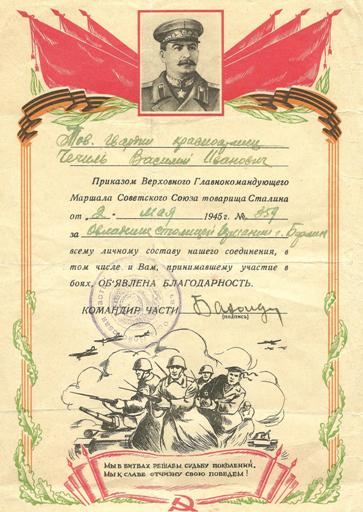 Тов. гвардии красноармеец
Чечиль Василий Иванович
Приказом Верховного Главнокомандующего
Маршала Советского Союза товарища Сталина
от „2" мая 1945 г. № 359
за овладение столицей Германии г. Берлин
всему личному составу нашего соединения, в
том числе и Вам, принимавшему участие в
боях, ОБЪЯВЛЕНА БЛАГОДАРНОСТЬ.
КОМАНДИР ЧАСТИ
(подпись)
МЫ В БИТВАХ РЕШАЕМ СУДЬБУ ПОКОЛЕНИЙ,
МЫ К СЛАВЕ ОТЧИЗНУ СВОЮ ПОВЕДЕМ!